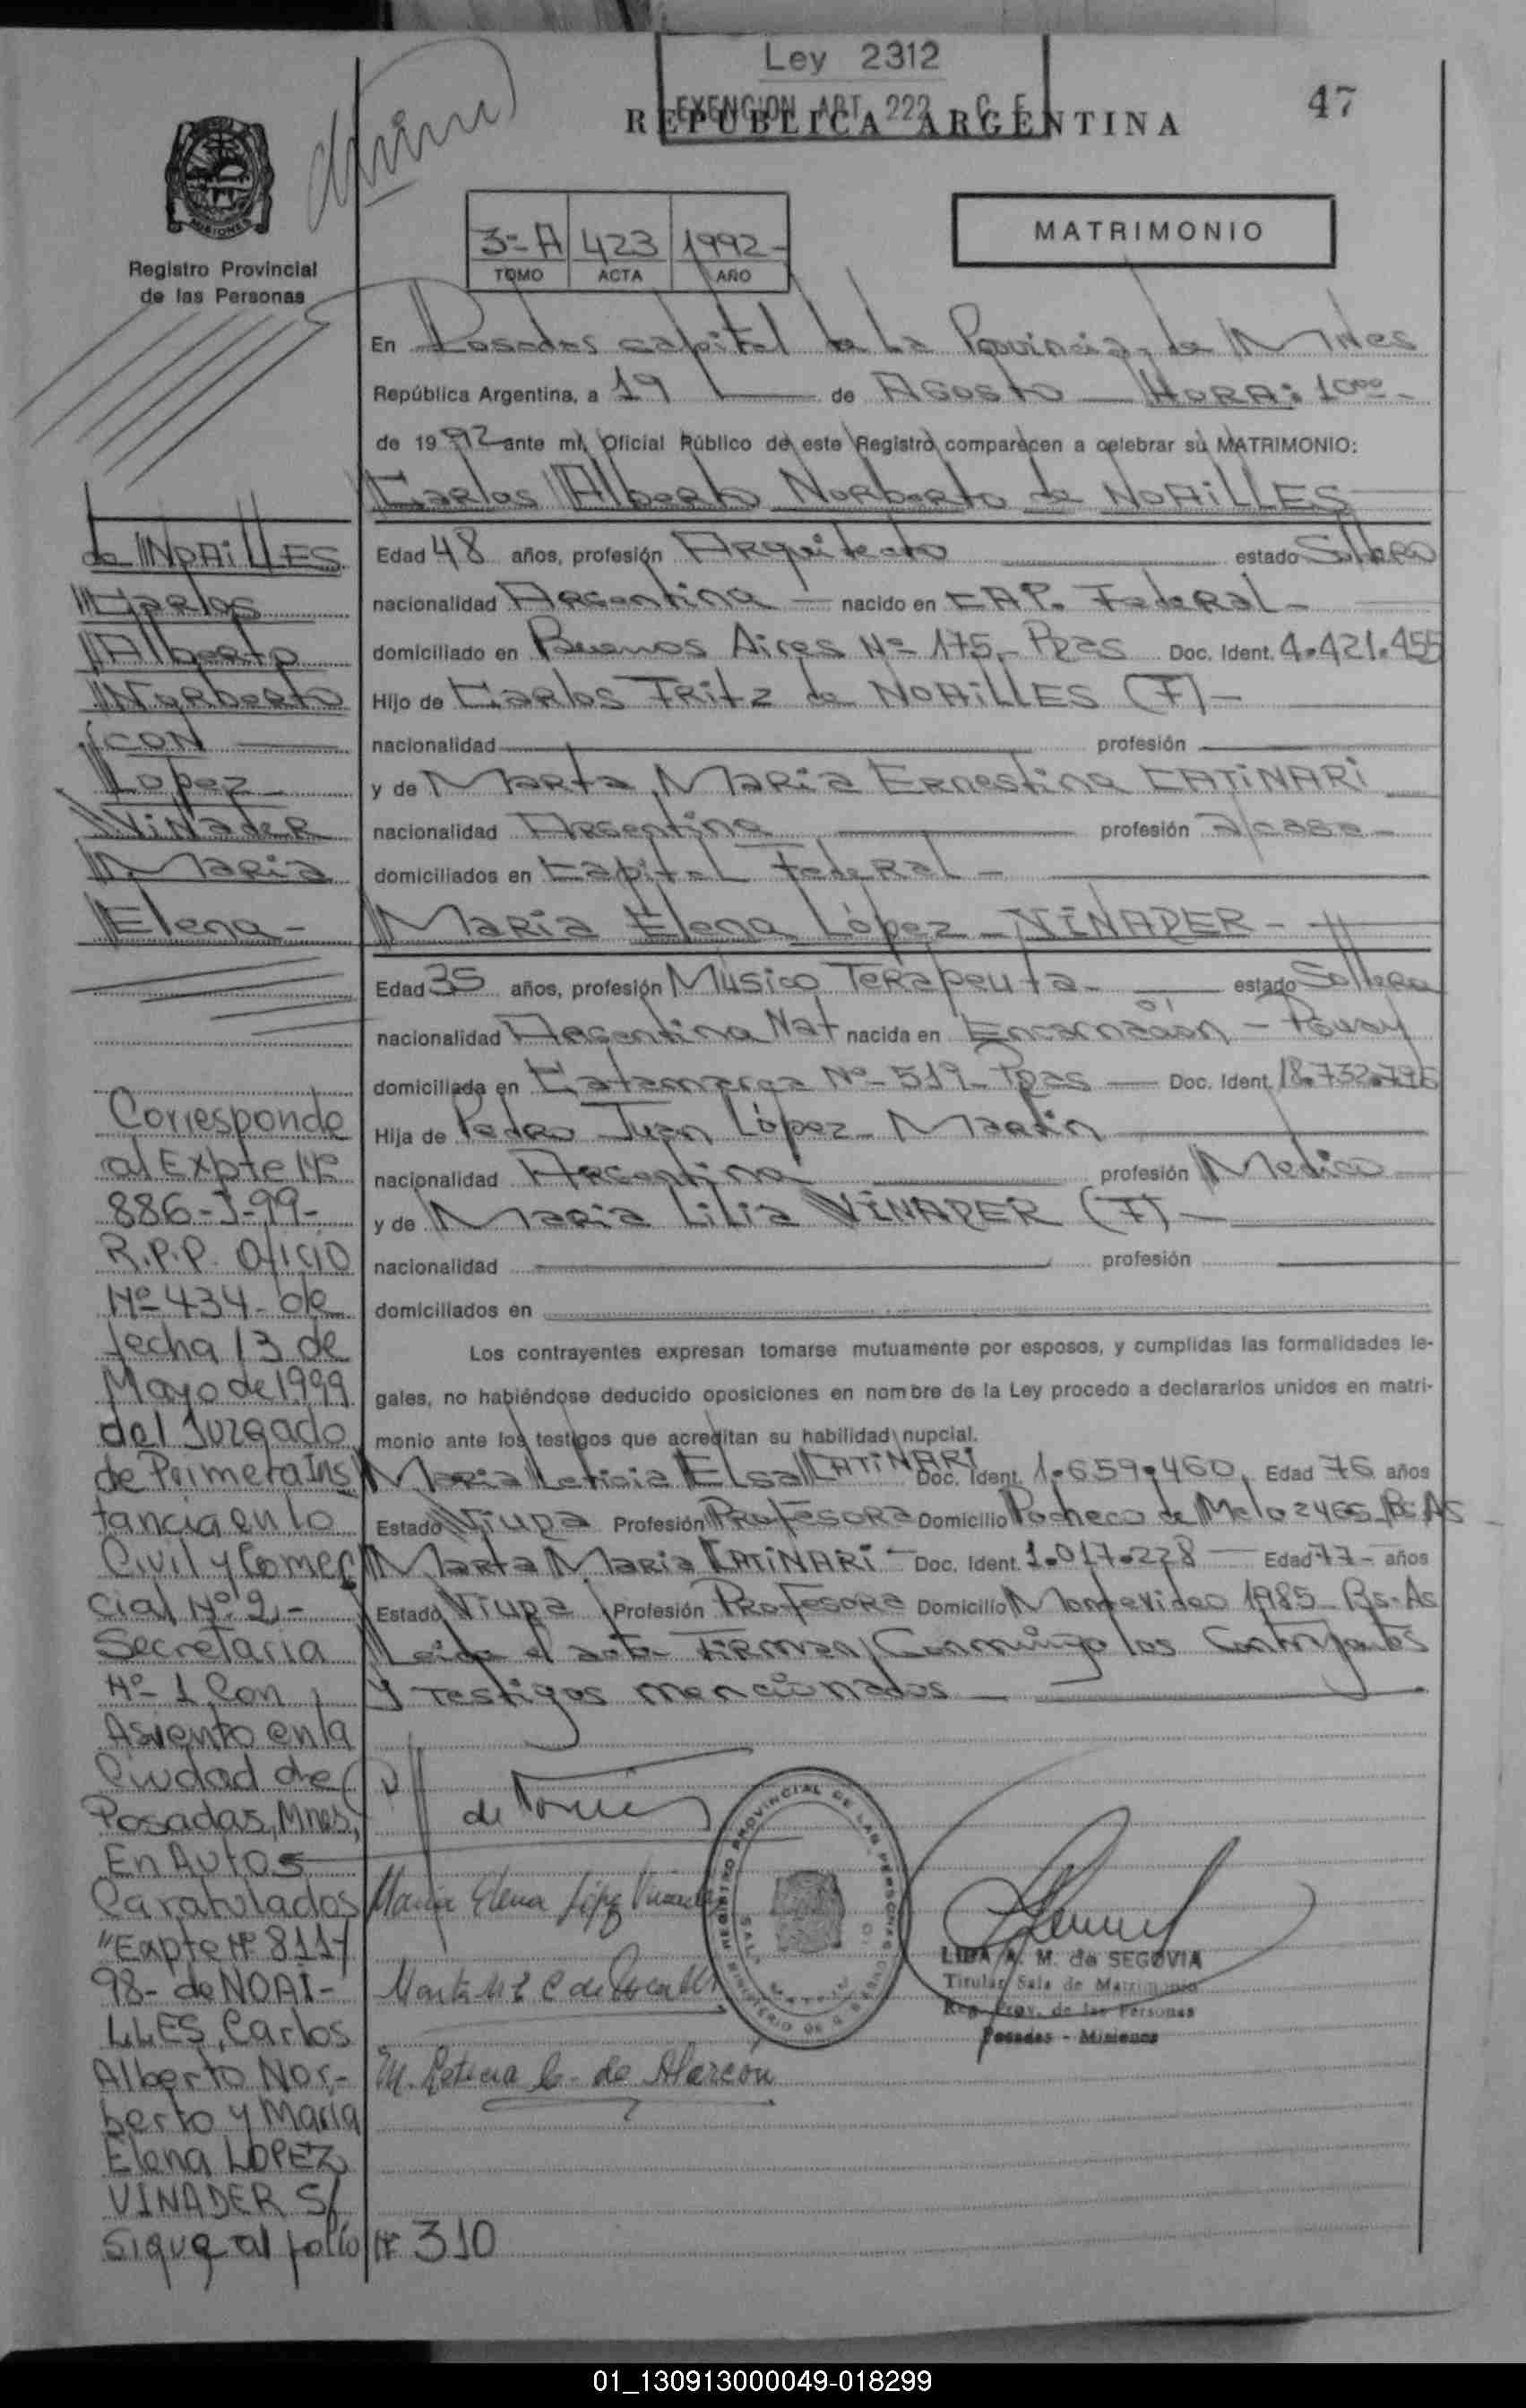 Ley 2312
EXENCION ART 222 C. F.
REPUBLICA ARGENTINA
47
MISIONES
Registro Provincial
de las Personas
3=A 423 1992-
TOMO ACTA AÑO
MATRIMONIO
En Posadas capital de La Provincia de Mnes
República Argentina, a 19 de Agosto HORA: 10ºº-
de 1992 ante mí, Oficial Público de este Registro comparecen a celebrar su MATRIMONIO:
Carlos Alberto Norberto de NOAiLLES
Edad 48 años, profesión Arquitecto estado Soltero
nacionalidad Argentina - nacido en CAP. Federal -
domiciliado en Buenos Aires Nº 175 - Pzas Doc. Ident. 4.421.455
Hijo de Carlos Fritz de NOAiLLES (F) -
nacionalidad profesión
y de Marta Maria Ernestina CATiNARi
nacionalidad Argentina profesión a/casa -
domiciliados en Capital Federal -
Maria Elena López - ViNADER -
Edad 35 años, profesión Músico Terapeuta - estado Soltera
nacionalidad Argentina Nat nacida en Encarnación - Pguay
domiciliada en Catamarca Nº 519 - Pzas Doc. Ident. 18.732.796
Hija de Pedro Juan López - Martin
nacionalidad Argentina profesión Medico
y de Maria Lilia ViNADER (F) -
nacionalidad profesión
domiciliados en
Los contrayentes expresan tomarse mutuamente por esposos, y cumplidas las formalidades le-
gales, no habiéndose deducido oposiciones en nombre de la Ley procedo a declararlos unidos en matri-
monio ante los testigos que acreditan su habilidad nupcial.
Maria Leticia Elsa CATiNARi Doc. Ident. 1.659.460, Edad 76 años
Estado Viuda Profesión Profesora Domicilio Pacheco de Melo 2465 Bs As
Marta Maria CATiNARi - Doc. Ident. 1.017.228 Edad 77 - años
Estado Viuda Profesión Profesora Domicilio Montevideo 1985 Bs. As
Leida el acta firman Conmingo los Contrayentes
y testigos mencionados
de NOAiLLES
Carlos
Alberto
Norberto
con
Lopez
ViNader
Maria
Elena -
Corresponde
al Expte Nº
886-J-99-
R.P.P. Oficio
Nº 434 - de
fecha 13 de
Mayo de 1999
del Juzgado
de Primera Ins
tancia en lo
Civil y Comer
cial Nº 2 -
Secretaria
Nº 1 Con
Asiento en la
Ciudad de
Posadas, Mnes,
En Autos
Caratulados
"Expte Nº 811-
98- de NOAI-
LLES, Carlos
Alberto Nor-
berto y Maria
Elena LOPEZ
VINADER S/
sigue al folio Nº 310
Maria Elena López Vinader
M. Leticia C. de Alarcón
REGISTRO PROVINCIAL DE LAS PERSONAS
LIDA A. M. de SEGOVIA
Titular Sala de Matrimonio
Reg. Prov. de las Personas
Posadas - Misiones
01_130913000049-018299